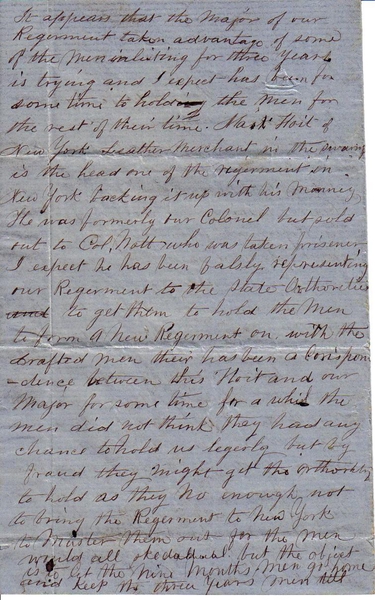 It appears that the Major of our
Regerment taken advantage of some
of the Men inlisting for three Years
is trying and I expect has been for
some time to holding the Men for
the rest of their time. Hoit of
New York Leather Merchant in the
is the head one of the regerment in
New York backing it up with his Monney
He was formerly our Colonel but sold
out to Col. Nott who was taken prisener
I expect he has been falsly representing
our Regerment to the State Orthoreties
and to get them to hold the Men
to form a new Regerment on with the
drafted men their has been a Corispon
-dence between this Hoit and our
Major for some time for a while the
men did not think they had any
chance to hold us legerly but by
fraud they might get the orthority
to hold as they no enough not
to bring the Regerment to New York
to Muster them out for the men
would all skedaddle but the object
is to let the nine Months men go home
and keep the three years men